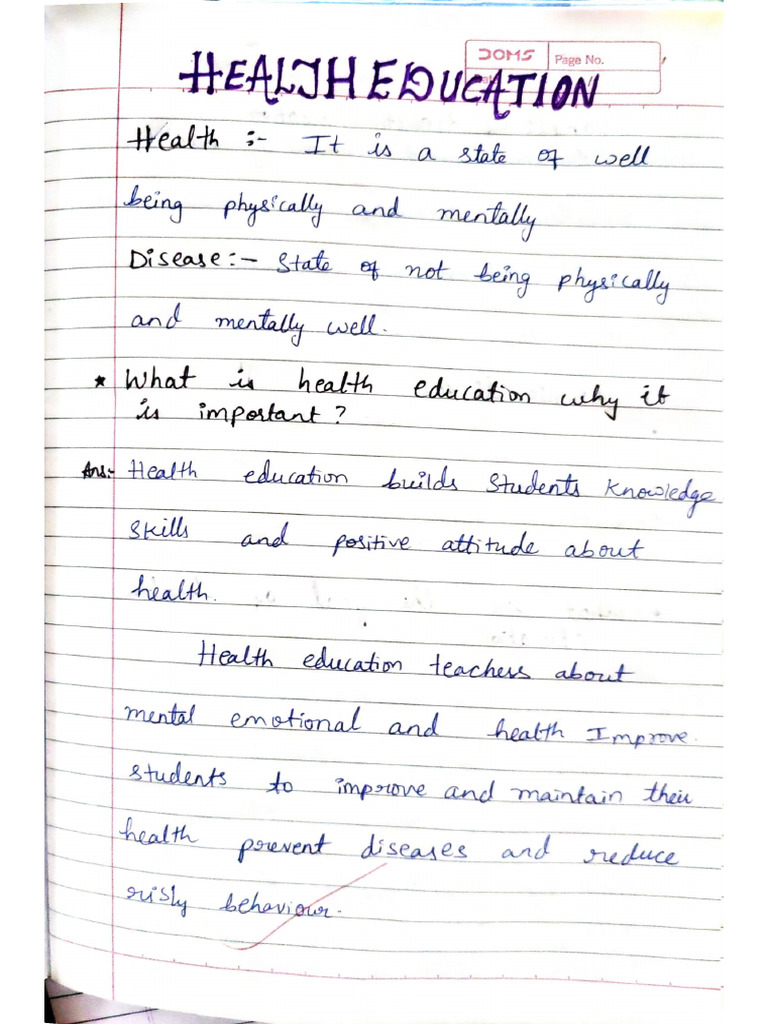 DOMS Page No.
HEALTH EDUCATION
Health :- It is a state of well
being physically and mentally
Disease:- State of not being physically
and mentally well.
* What is health education why it
is important?
Ans:- Health education builds students knowledge
skills and positive attitude about
health.
Health education teachess about
mental emotional and health Improve.
students to improve and maintain their
health prevent diseases and reduce
risly behaviour.